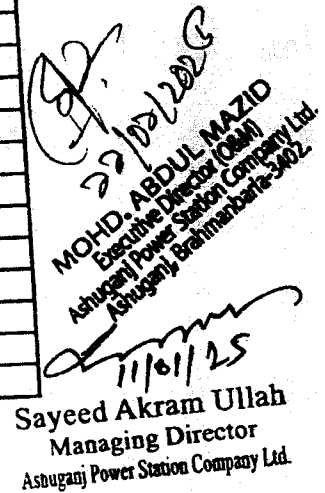 MOHD. ABDUL MAZID
Executive Director (O&M)
Ashuganj Power Station Company Ltd.
Ashuganj, Brahmanbaria-3402.
11/01/25
Sayeed Akram Ullah
Managing Director
Ashuganj Power Station Company Ltd.